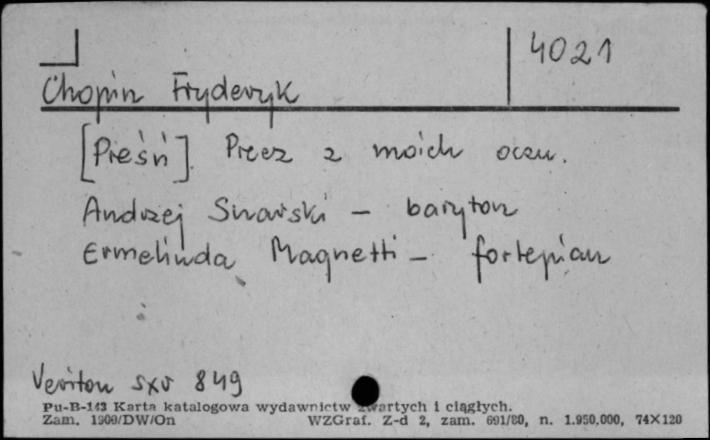 4021
Chopin Fryderyk
[Pieśń]. Precz z moich oczu.
Andrzej Snarski – baryton
Ermelinda Magnetti – fortepian
Veriton sxv 849
Pu-B-143 Karta katalogowa wydawnictw zwartych i ciągłych.
Zam. 1900/DW/On WZGraf. Z-d 2, zam. 691/80, n. 1.950.000, 74X120